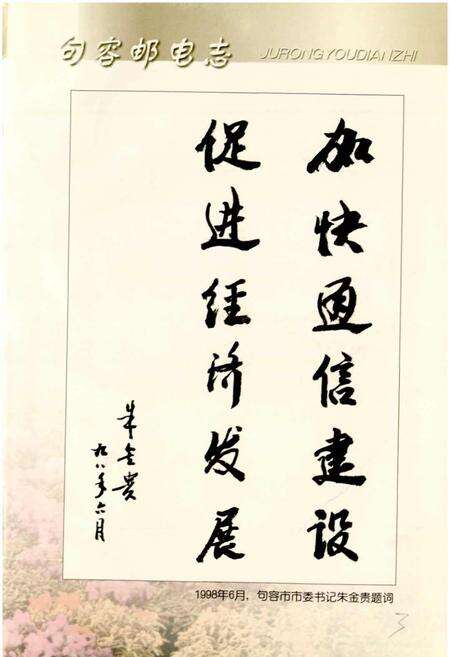 句容邮电志
JURONGYOUDIANZHI
加快通信建设
促进经济发展
朱金贵
九八年六月
1998年6月，句容市市委书记朱金贵题词
3